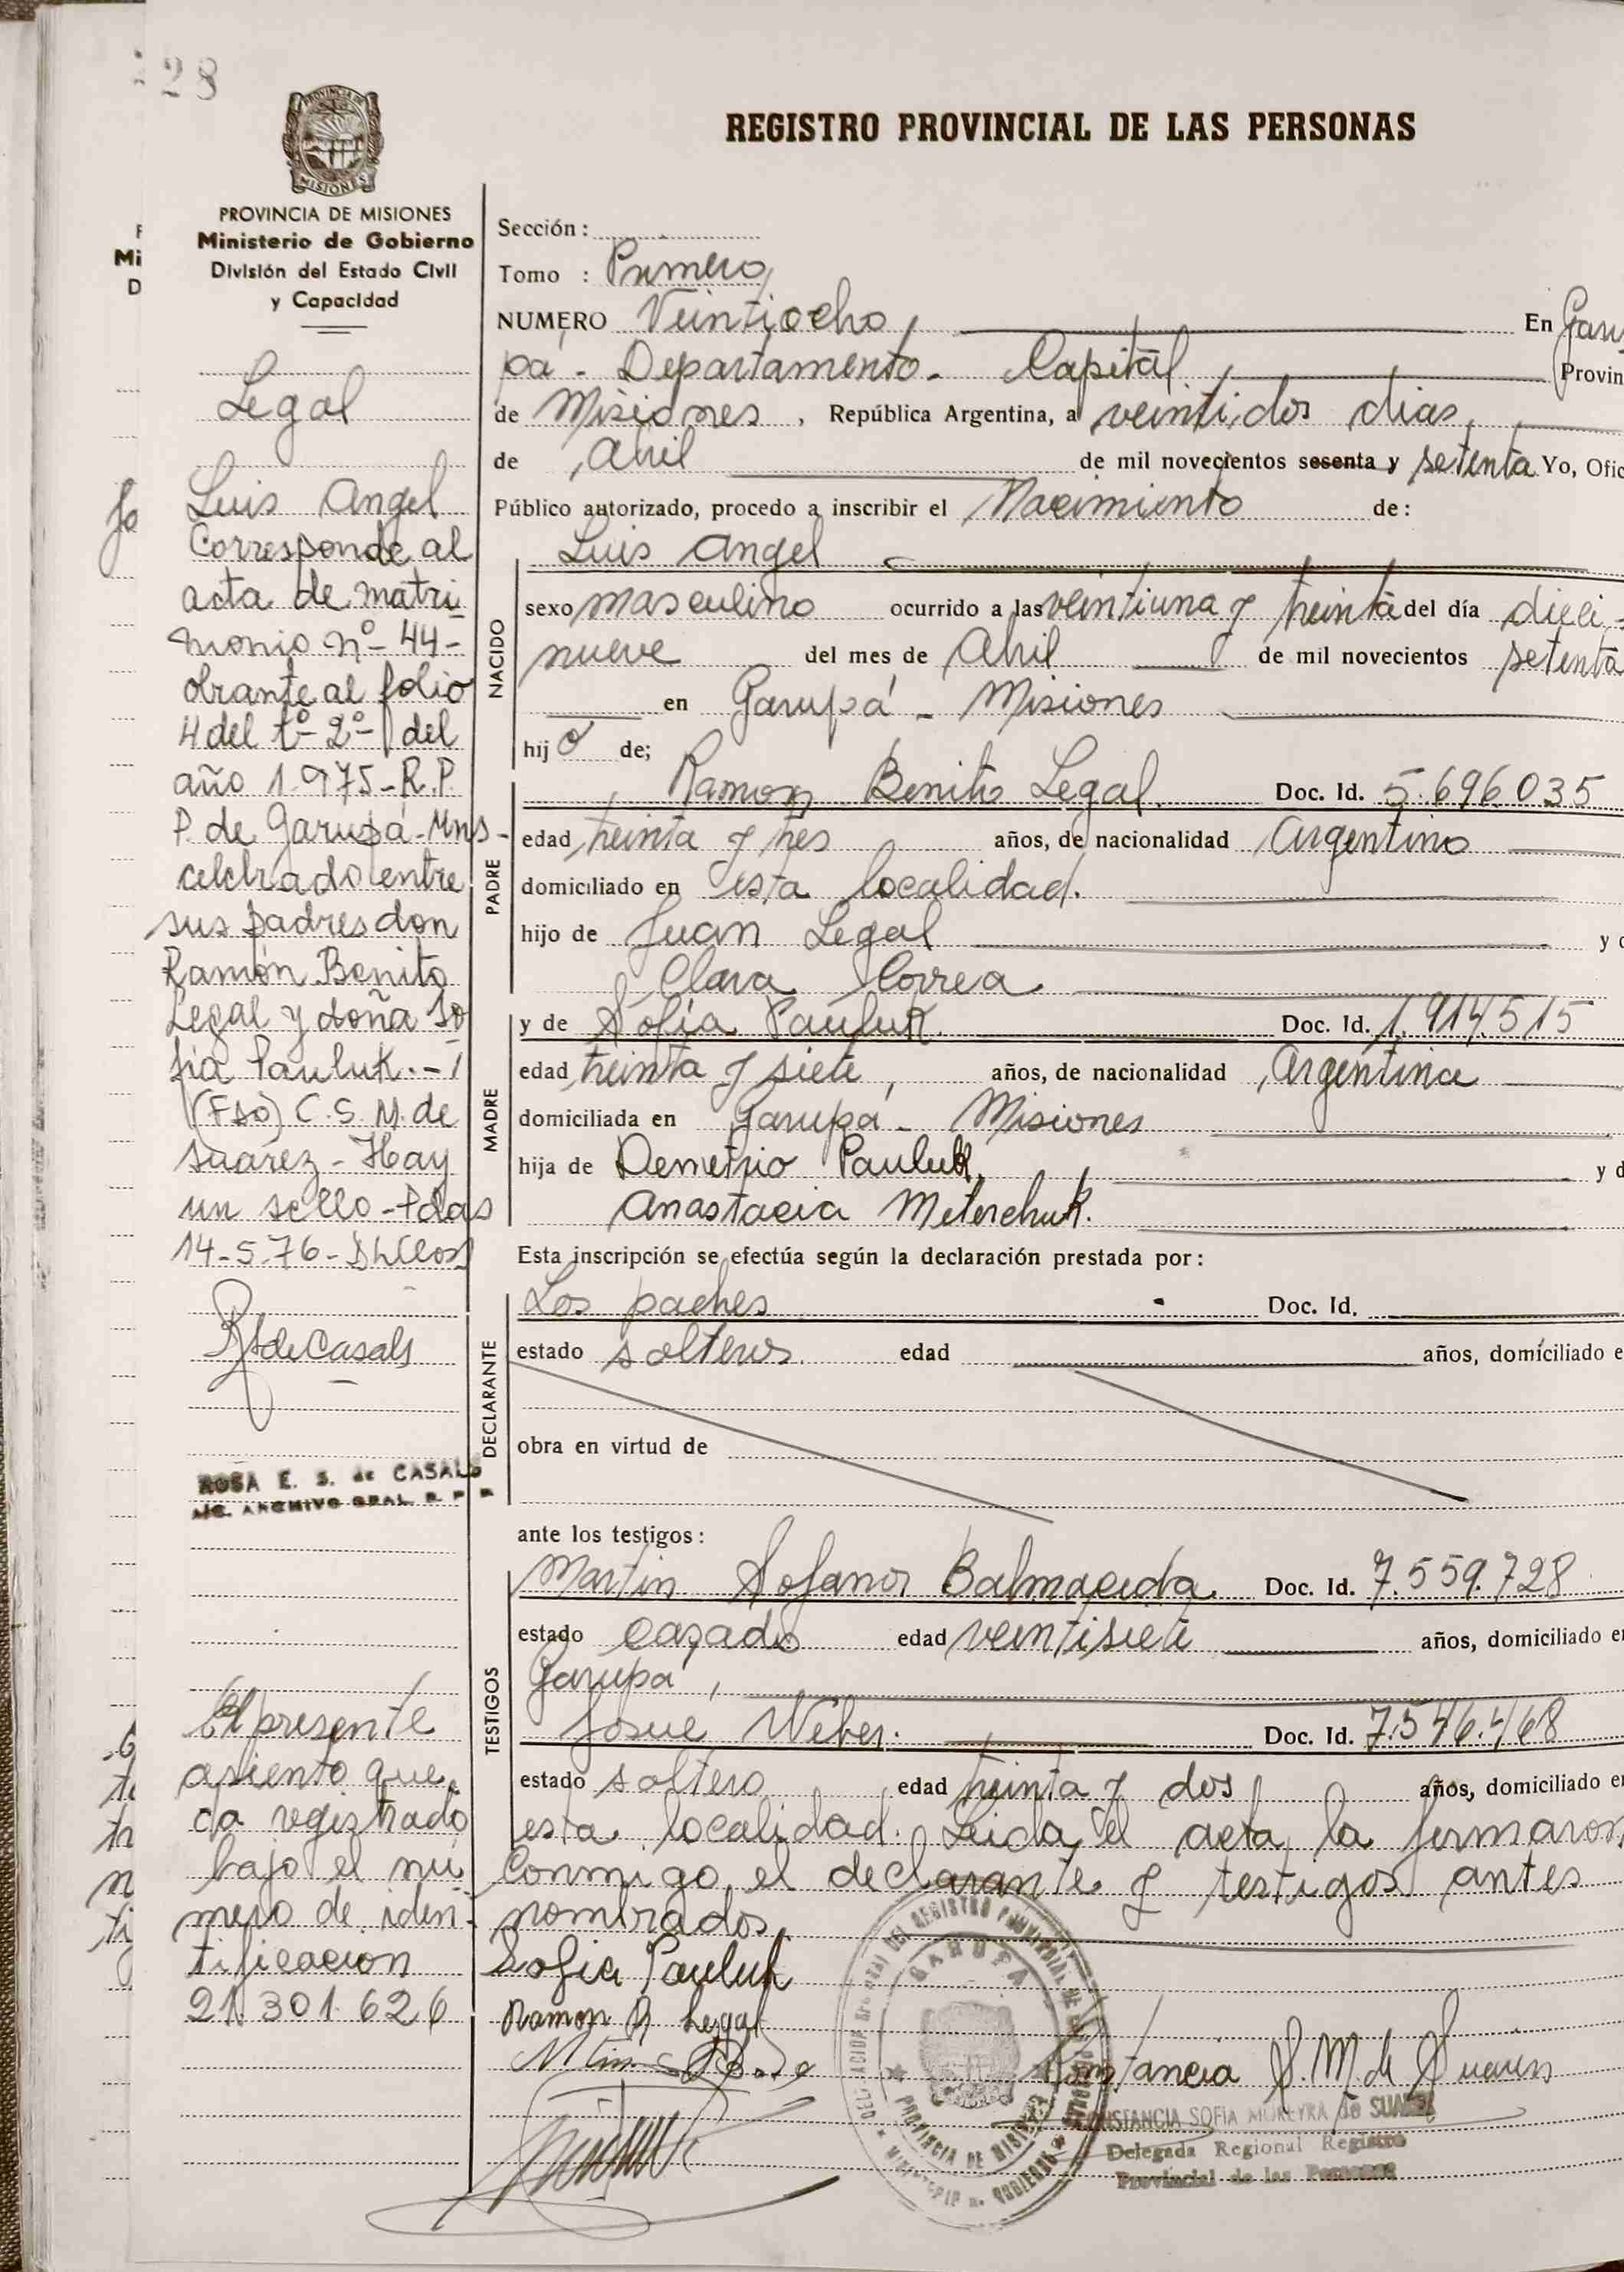 28
PROVINCIA DE
MISIONES
PROVINCIA DE MISIONES
Ministerio de Gobierno
División del Estado Civil
y Capacidad
Legal
Luis Angel
Corresponde al
acta de matri
monio nº- 44-
obrante al folio
4 del tº- 2º- del
año 1.975-R.P.
P. de Garupá-Mns-
celebrado entre
sus padres don
Ramón Benito
Legal y doña So
fia Pauluk.-
(Fdo) C. S. M. de
Suarez - Hay
un sello - Pdas
14-5-76-
RSdeCasals
ROSA E. S. de CASALS
ARCHIVO GRAL. R. P. P.
El presente
asiento que
da registrado
bajo el nú
mero de iden-
tificacion
21.301.626
REGISTRO PROVINCIAL DE LAS PERSONAS
Sección:
Tomo : Primero
NUMERO Veintiocho En Garu
pá - Departamento - Capital Provin
de Misiones, República Argentina, a veintidos dias,
de Abril de mil novecientos sesenta y setenta Yo, Ofic
Público autorizado, procedo a inscribir el Nacimiento de:
NACIDO
Luis Angel
sexo masculino ocurrido a las veintiuna y treinta del día dieci-
nueve del mes de Abril de mil novecientos setenta
en Garupá - Misiones
hijo de;
PADRE
Ramon Benito Legal Doc. Id. 5.696.035
edad treinta y tres años, de nacionalidad Argentino
domiciliado en esta localidad.
hijo de Juan Legal y
Clara Correa
MADRE
y de Sofía Pauluk. Doc. Id. 1.914.515
edad treinta y siete, años, de nacionalidad Argentina
domiciliada en Garupá - Misiones
hija de Demetrio Pauluk, y d
Anastacia Meterchuk.
Esta inscripción se efectúa según la declaración prestada por:
DECLARANTE
Los padres Doc. Id.
estado solteros edad años, domiciliado e
obra en virtud de
ante los testigos:
TESTIGOS
Martin Sofanor Balmaceda Doc. Id. 7.559.728
estado cazado edad veintisiete años, domiciliado en
Garupá,
Josue Weber. Doc. Id. 7.546.468
estado soltero edad treinta y dos años, domiciliado en
esta localidad. Leida el acta, la firmaron
Conmigo, el declarante y testigos antes
nombrados
Sofia Pauluk
Ramon B Legal
GARUPA
PROVINCIA DE MISIONES
Constancia S. M. de Suarez
CONSTANCIA SOFIA MOREYRA de SUAREZ
Delegada Regional Registro
Provincial de las Personas